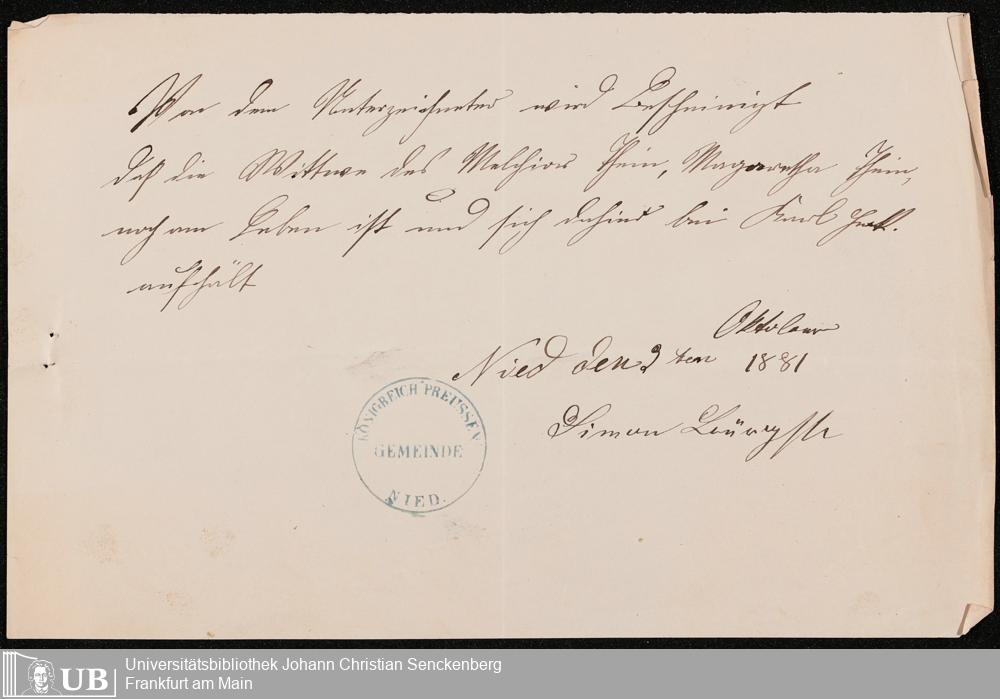 Von dem Unterzeichneten wird Bescheinigt
daß die Wittwe des Melchior Thein, Magaretha Thein,
noch am Leben ist und sich dahier bei Karl
aufhält
Oktober
Nied den 9ten 1881
Simon
KÖNIGREICH PREUSSEN
GEMEINDE
NIED.
UB
Universitätsbibliothek Johann Christian Senckenberg
Frankfurt am Main